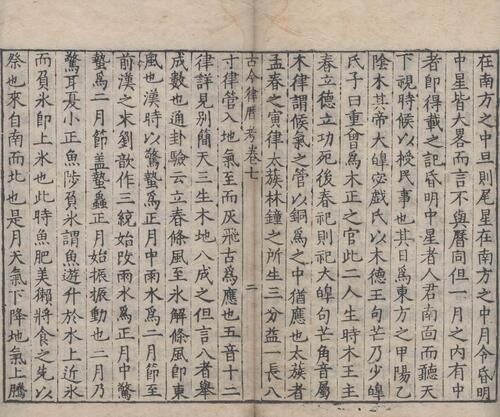 在南方之中旦則尾星在南方之中月令昏明
中星皆大畧而言不與曆同但一月之内有中
者即得載之記昏明中星者人君南面而聽天
下視時候以授民事也其日爲東方之甲陽乙
陰木其帝大皥宓戲氏以木德王句芒乃少皥
氏子曰重曾爲木正之官此二人生時木王主
春立德立功死後春祀則祀大皥句芒角音屬
木律謂候氣之管以銅爲之中猶應也太蔟者
孟春之寅律太蔟林鐘之所生三分益一長八
古今律曆考卷七
二
寸律管入地氣至而灰飛古爲應也五音十二
律詳見别簡天三生木地八成之但言八者舉
成數也通卦驗云立春條風至氷解條風即東
風也漢時以驚蟄爲正月中雨水爲二月節至
前漢之末劉歆作三統始攺雨水爲正月中驚
蟄爲二月節盖蟄蟲正月始振振動也二月乃
驚耳夏小正魚陟負氷謂魚遊升於水上近氷
而負氷即上氷也此時魚肥美獺將食之先以
祭也來自南而北也是月天氣下降地氣上騰